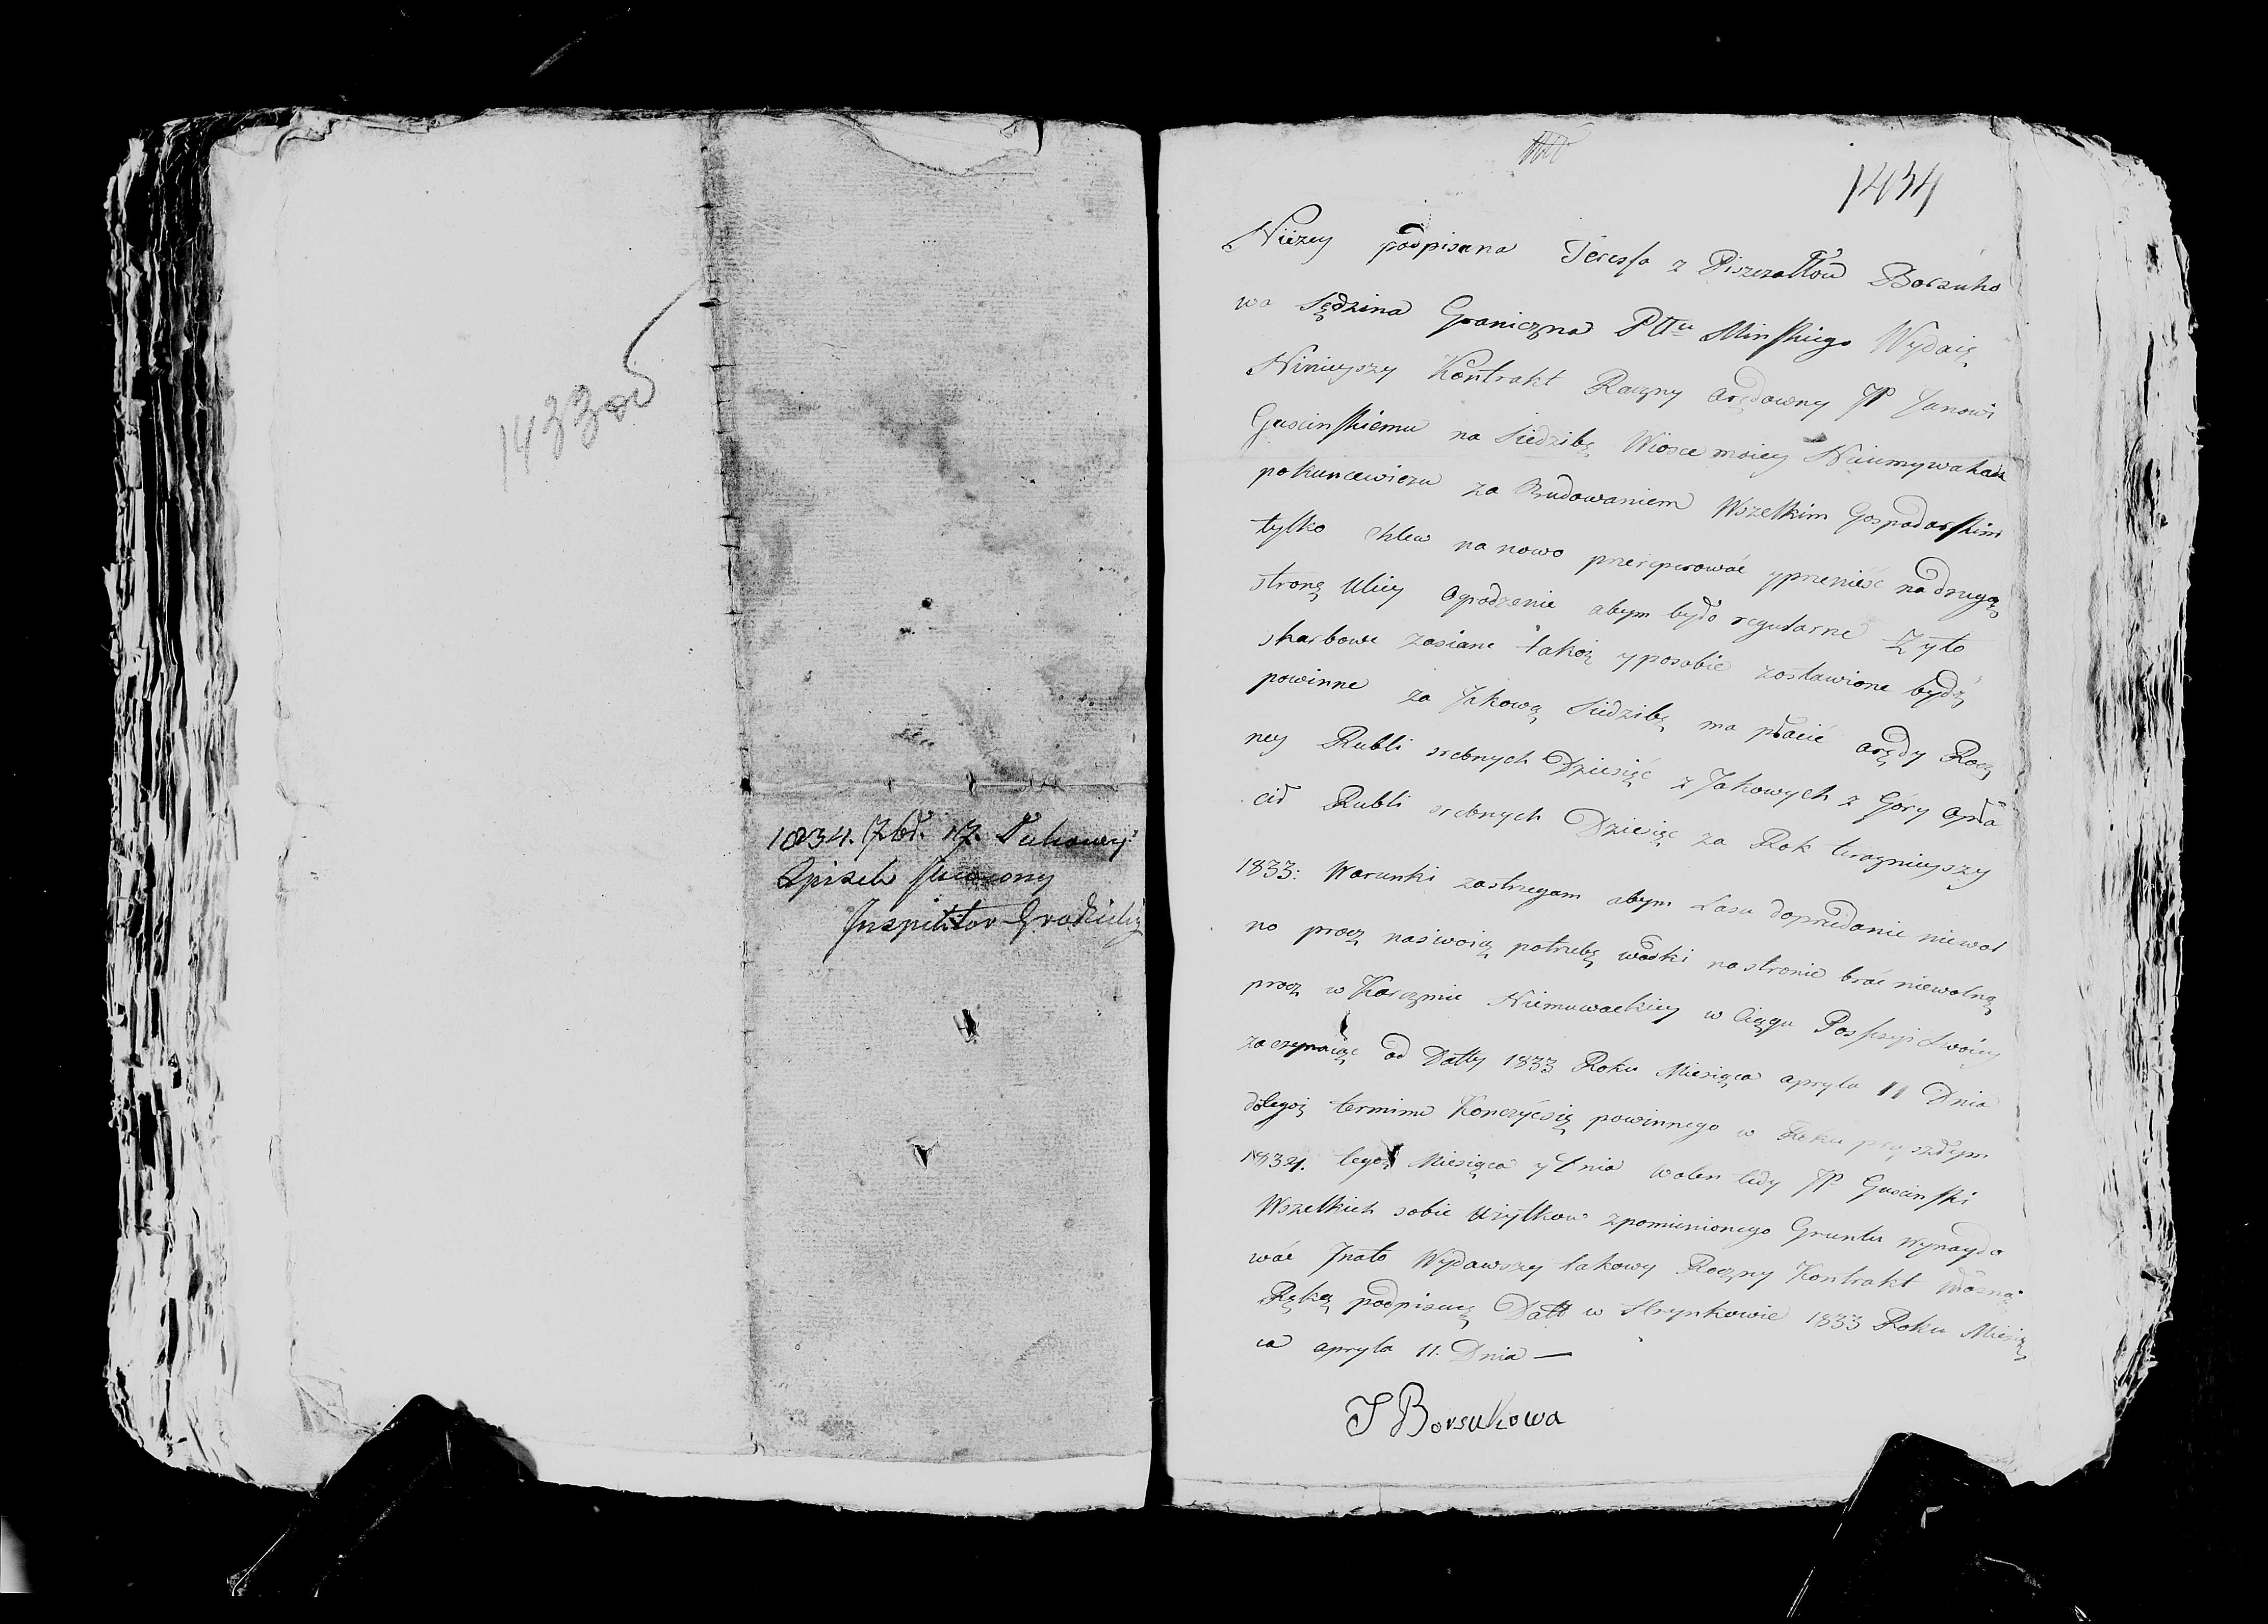 1433об
1834. 7br. 17.
Inspektor
1434
Niżey podpisana Teressa z Piszczałłów Borsuko
wa Sędzina Graniczna PTTu Minskiego Wydaię
Ninieyszy Kontrakt Roczny arędowny JP Janowi
Guscinskiemu na Siedzibę Wiosce moiey
po kuncewiczu za Budowaniem Wszelkim Gospodarskim
tylko Chlew na nowo prereperować y prenieść na drugą
stronę Ulicy Ogrodzenie abym było regularne Żyto
skarbowe zasiane takoż y posobie zostawione bydź
powinne za Jakową Siedzibę ma płacić arędy Rocz
ney Rubli srebnych Dziesięć z Jakowych z Góry Opła
cił Rubli srebnych Dziesięć za Rok teraznieyszy
1833: Warunki zastrzegam abym Lasu do predanie niewol
no procz na swoią potrzebę wodki na stronie brać niewolną
procz w Karczmie Niemowackiey w Ciągu Possesyi Swoiey
zaczynaiąc od Datty 1833 Roku Miesiąca apryla 11 Dnia
do tegoż termimu Konczyć się powinnego w Roku przyszłym
1834. tegoż Miesiąca y Dnia wolen tedy JP Guscinski
Wszelkich sobie użytkow z pomienionego Gruntu Wynaydo
wać Inato Wydawszy takowy Roczny Kontrakt własną
Ręką podpisuię Datt w Strynkowie 1833 Roku Miesią
ca apryla 11. Dnia —
T Borsukowa